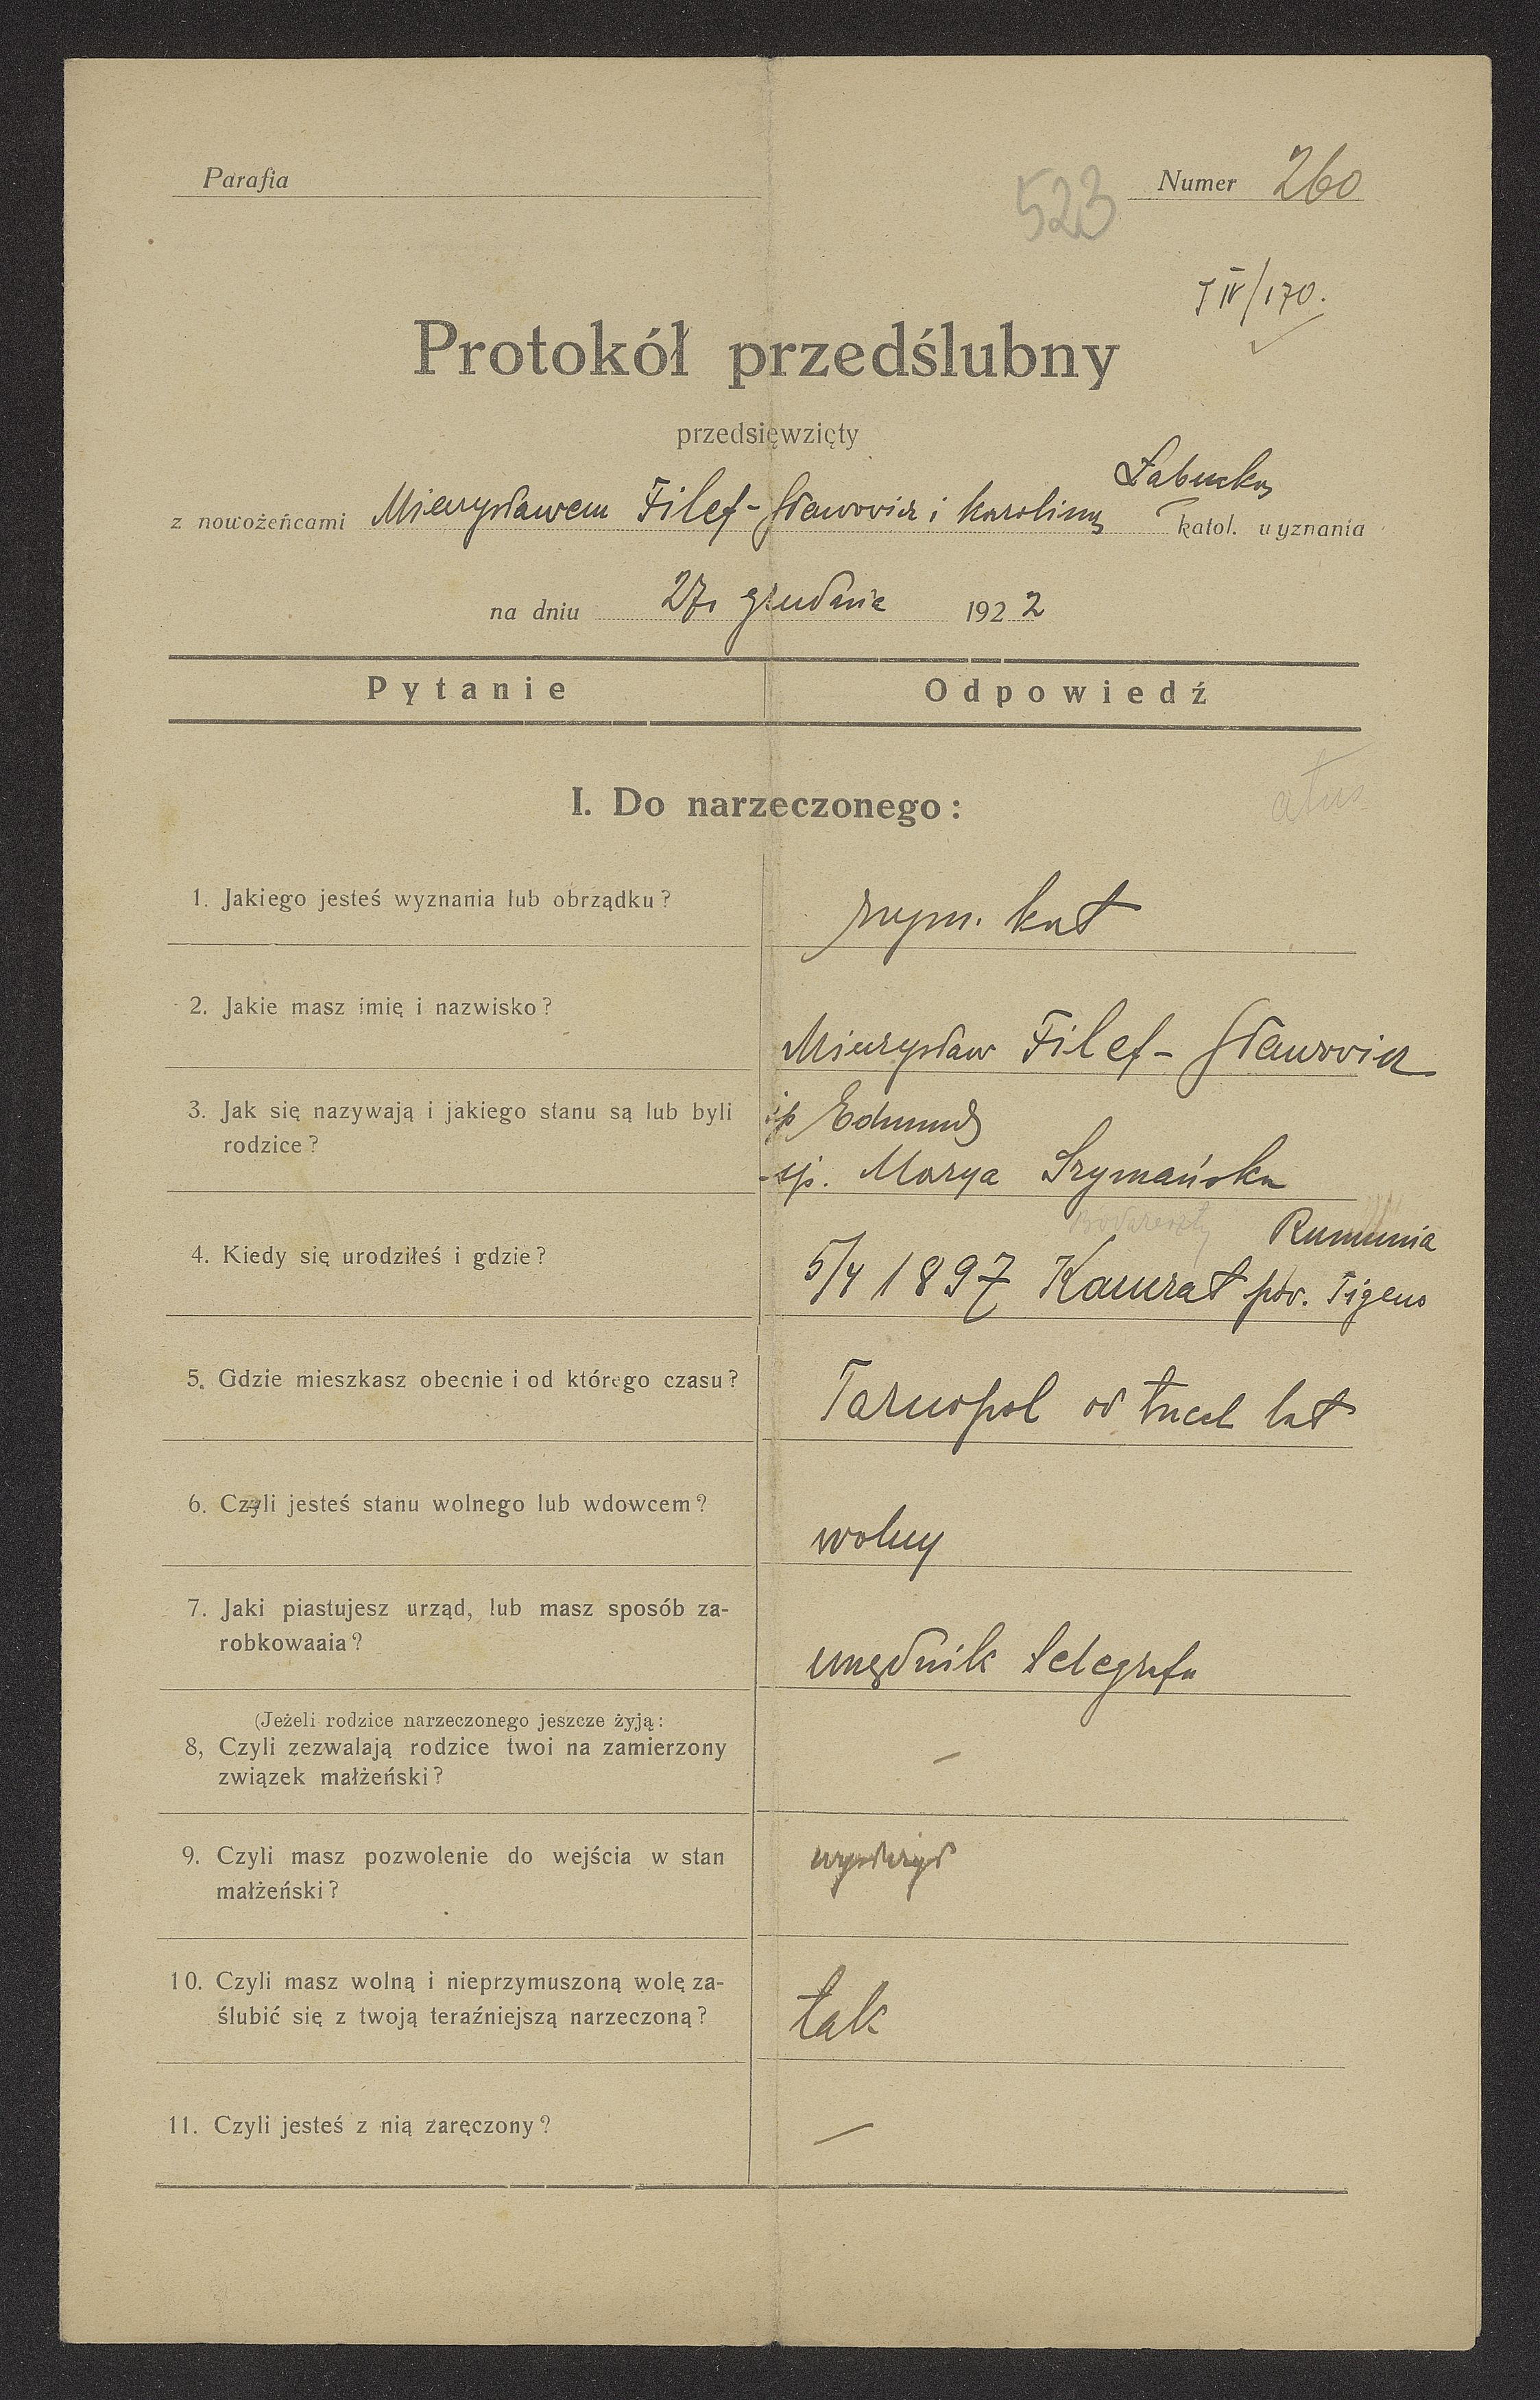 Parafia
523
Numer 260
T IV/170.
Protokół przedślubny
przedsięwzięty
Łabucką
z nowożeńcami Mieczysławem Filef-Sławowicz i Karoliną katol. wyznania
na dniu 27. grudnia 1922
Pytanie Odpowiedź
I. Do narzeczonego:
1. Jakiego jesteś wyznania lub obrządku?
rzym. kat
2. Jakie masz imię i nazwisko?
Mieczysław Filef- Sławowicz
3. Jak się nazywają i jakiego stanu są lub byli
rodzice?
śp Edmund
śp. Marya Szymańska
4. Kiedy się urodziłeś i gdzie?
Rumunia
5/4 1897 Kaurat pow. Tigens
5. Gdzie mieszkasz obecnie i od którego czasu?
Tarnopol od trzech lat
6. Czyli jesteś stanu wolnego lub wdowcem?
wolny
7. Jaki piastujesz urząd, lub masz sposób za-
robkowaaia?
urzędnik telegrafu
(Jeżeli rodzice narzeczonego jeszcze żyją:
8, Czyli zezwalają rodzice twoi na zamierzony
związek małżeński?
–
9. Czyli masz pozwolenie do wejścia w stan
małżeński?
10. Czyli masz wolną i nieprzymuszoną wolę za-
ślubić się z twoją teraźniejszą narzeczoną?
tak
11. Czyli jesteś z nią zaręczony?
–